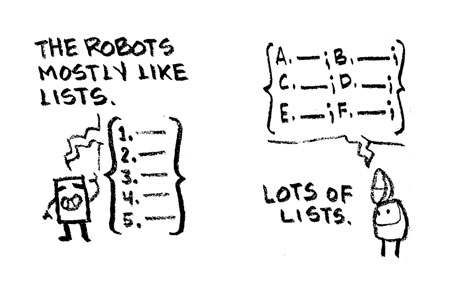 THE ROBOTS
MOSTLY LIKE
LISTS.
1. —
2. —
3. —
4. —
5. —
A. — ; B. — ;
C. — ; D. — ;
E. — ; F. — ;
LOTS OF
LISTS.